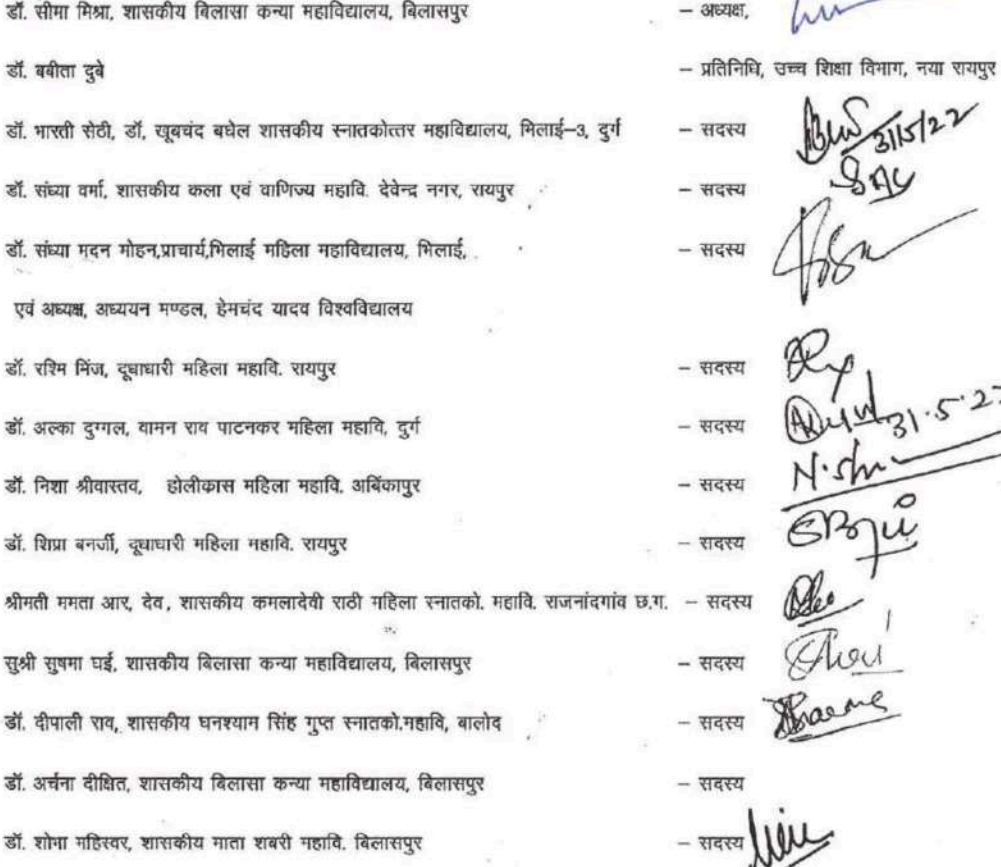 डॉ. सीमा मिश्रा, शासकीय बिलासा कन्या महाविद्यालय, बिलासपुर – अध्यक्ष,
डॉ. बबीता दुबे – प्रतिनिधि, उच्च शिक्षा विभाग, नया रायपुर
डॉ. भारती सेठी, डॉ, खूबचंद बघेल शासकीय स्नातकोत्तर महाविद्यालय, भिलाई–3, दुर्ग – सदस्य 31/5/22
डॉ. संध्या वर्मा, शासकीय कला एवं वाणिज्य महावि. देवेन्द्र नगर, रायपुर – सदस्य
डॉ. संध्या मदन मोहन,प्राचार्य,भिलाई महिला महाविद्यालय, भिलाई, – सदस्य
एवं अध्यक्ष, अध्ययन मण्डल, हेमचंद यादव विश्वविद्यालय
डॉ. रश्मि मिंज, दूधाधारी महिला महावि. रायपुर – सदस्य
डॉ. अल्का दुग्गल, वामन राव पाटनकर महिला महावि, दुर्ग – सदस्य
डॉ. निशा श्रीवास्तव, होलीकास महिला महावि. अबिंकापुर – सदस्य
डॉ. शिप्रा बनर्जी, दूधाधारी महिला महावि. रायपुर – सदस्य
श्रीमती ममता आर, देव, शासकीय कमलादेवी राठी महिला स्नातको. महावि. राजनांदगांव छ.ग. – सदस्य
सुश्री सुषमा घई, शासकीय बिलासा कन्या महाविद्यालय, बिलासपुर – सदस्य
डॉ. दीपाली राव, शासकीय घनश्याम सिंह गुप्त स्नातको.महावि, बालोद – सदस्य
डॉ. अर्चना दीक्षित, शासकीय बिलासा कन्या महाविद्यालय, बिलासपुर – सदस्य
डॉ. शोभा महिस्वर, शासकीय माता शबरी महावि. बिलासपुर – सदस्य